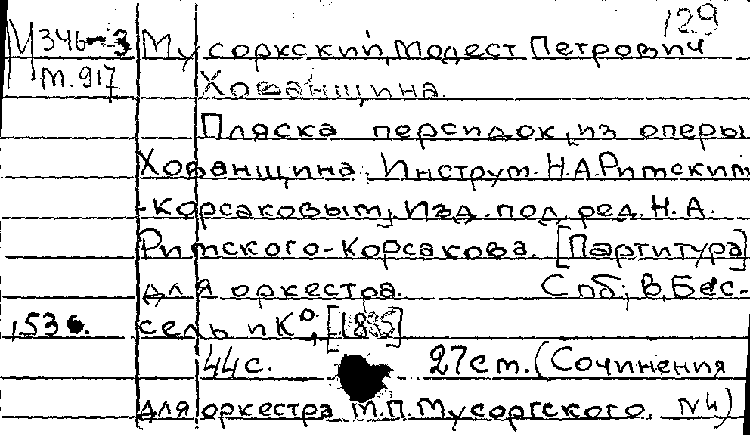 129
М 346-3 Мусоркский, Модест Петрович
т.917 Хованщина.
Пляска персидок, из оперы
Хованщина. Инструм. Н.А.Римским
-Корсаковым, Изд. под ред. Н.А.
Римского-Корсакова. [Партитура]
для оркестра. Спб; В.Бес-
сель и К°,
44 с. 27 см. (Сочинения
для оркестра М.П.Мусоргского. N4)